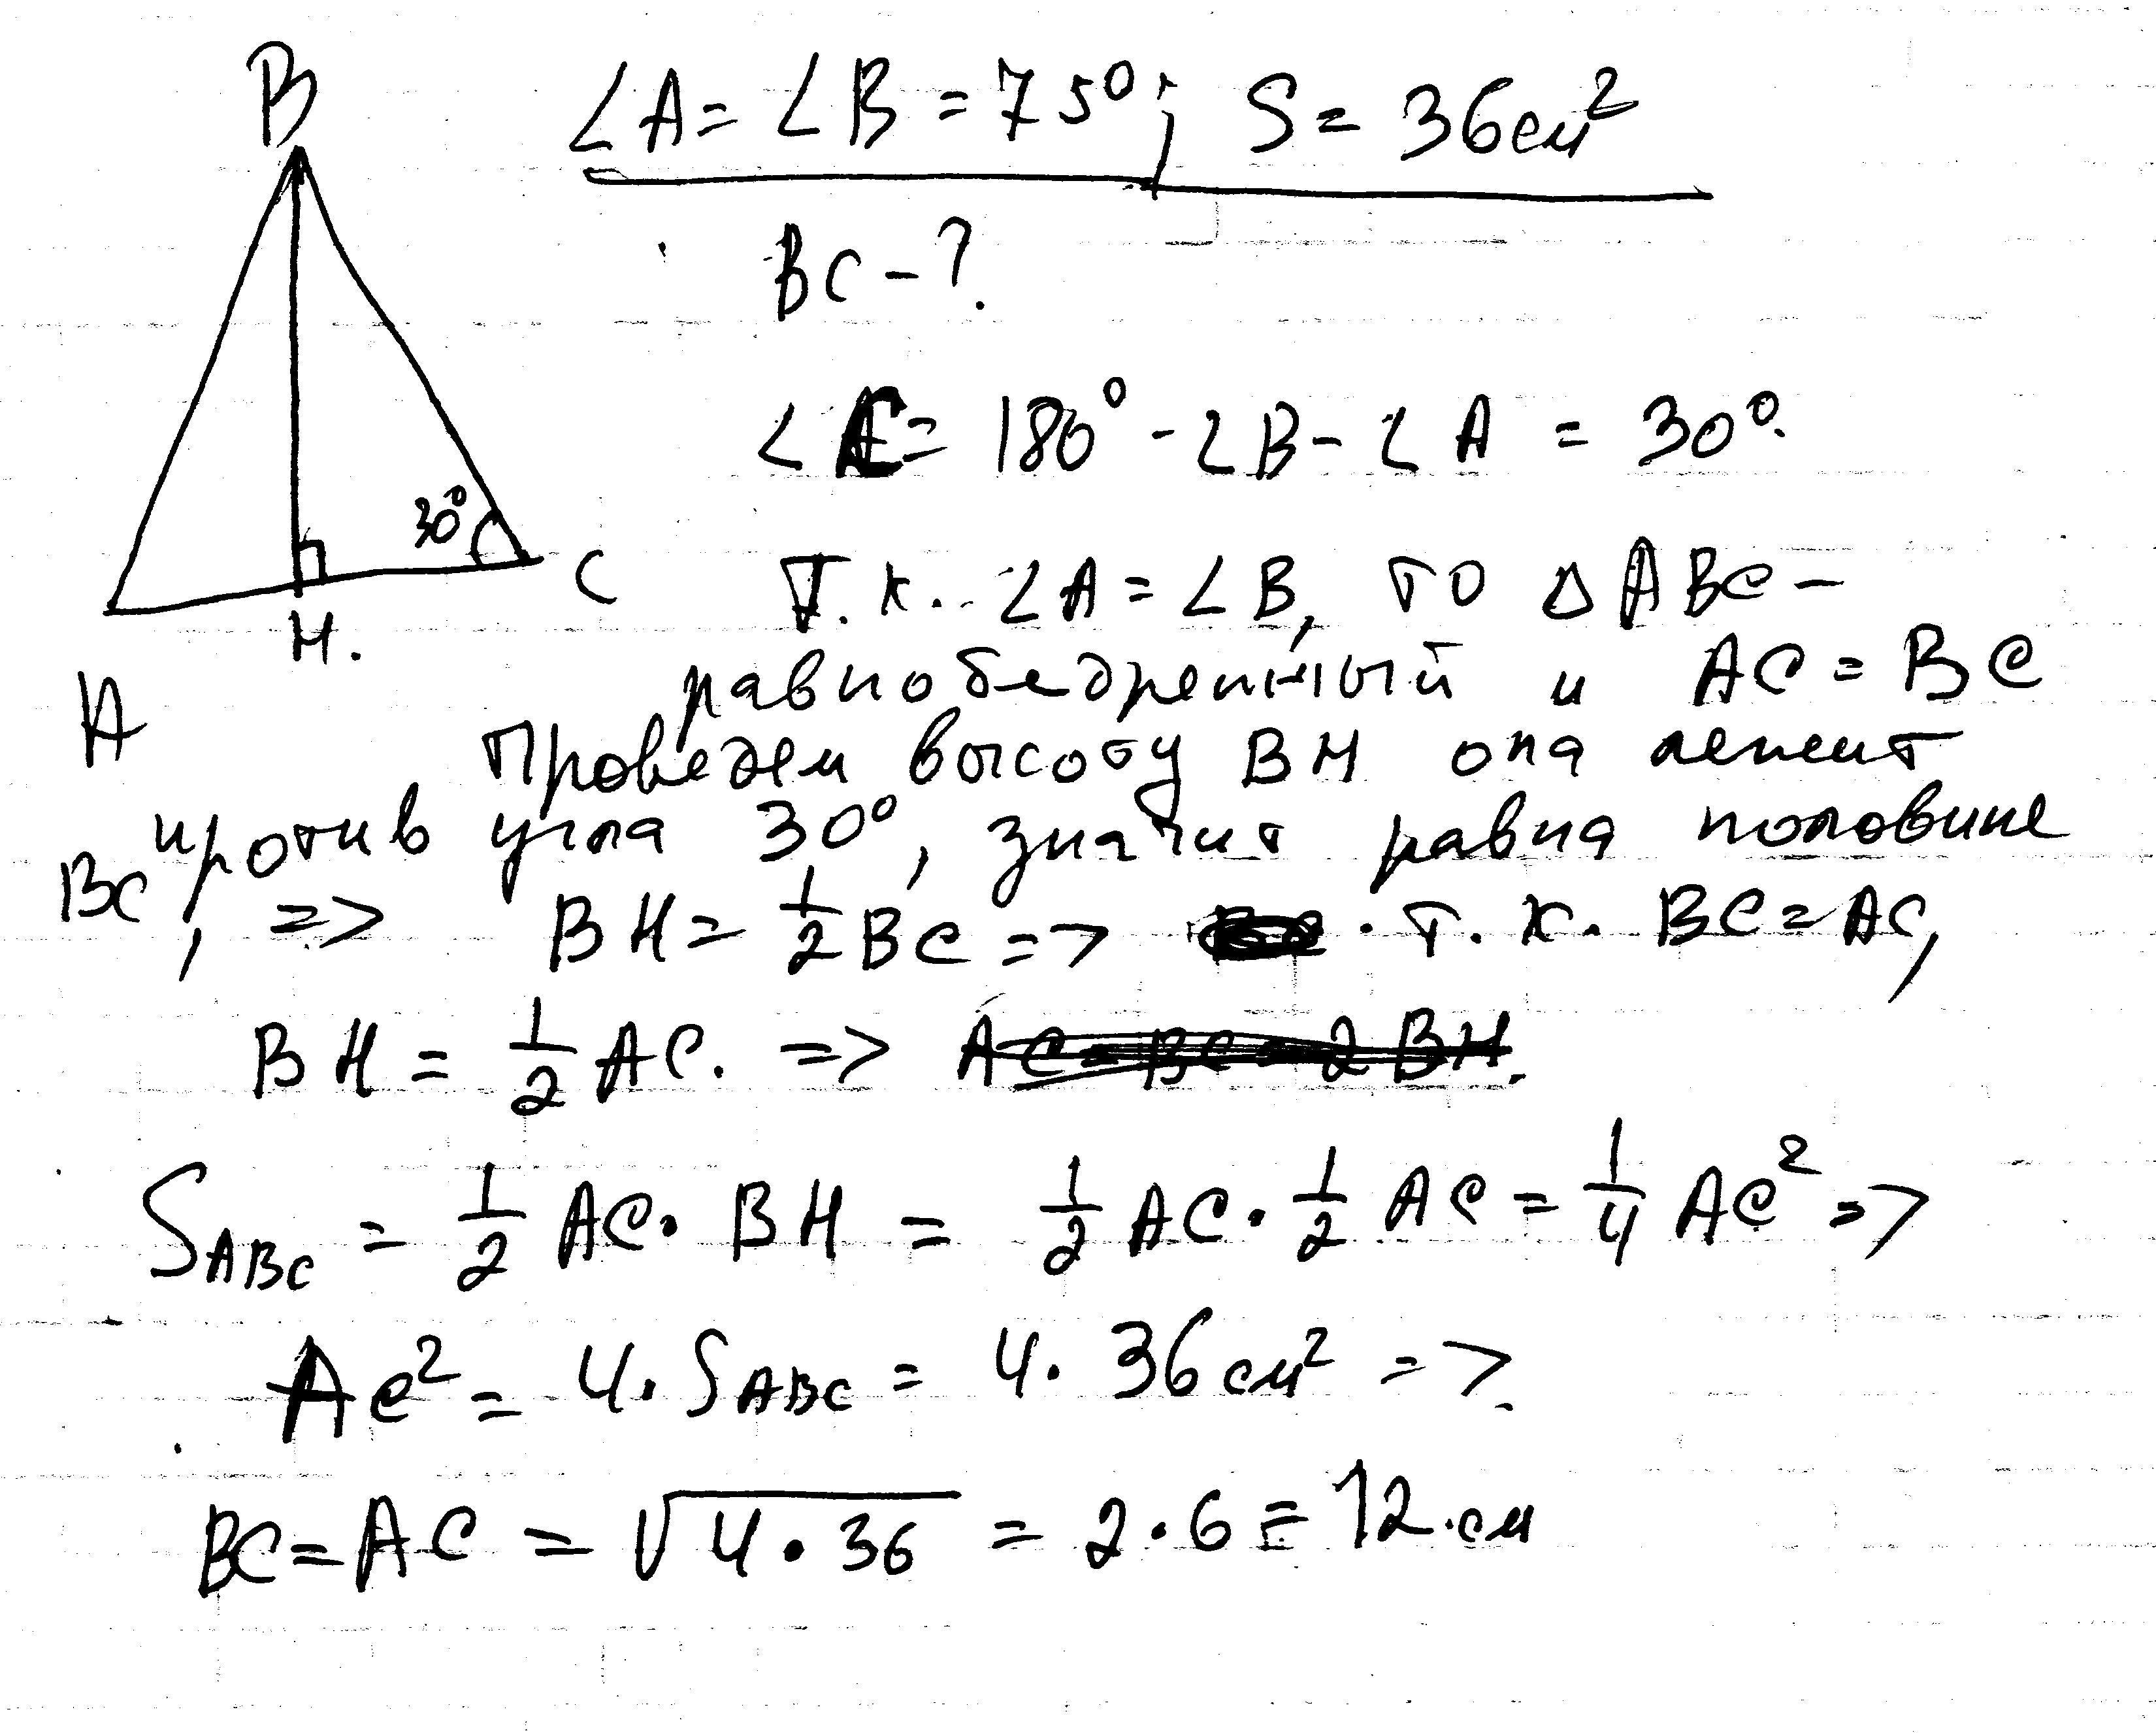 B
∠A = ∠B = 75°; S = 36см²
BC - ?
∠C = 180° - ∠B - ∠A = 30°.
30°
C
H.
A
Т.к. ∠A = ∠B, то △ABC –
равнобедренный и AC = BC
Проведем высоту BH она лежит
против угла 30°, значит равна половине
BC, => BH = 1/2 BC => т.к. BC = AC,
BH = 1/2 AC. => AC = BC = 2BH.
S ABC = 1/2 AC · BH = 1/2 AC · 1/2 AC = 1/4 AC² =>
AC² = 4 · S ABC = 4 · 36 см² =>
BC = AC = √4 · 36 = 2 · 6 = 12 см